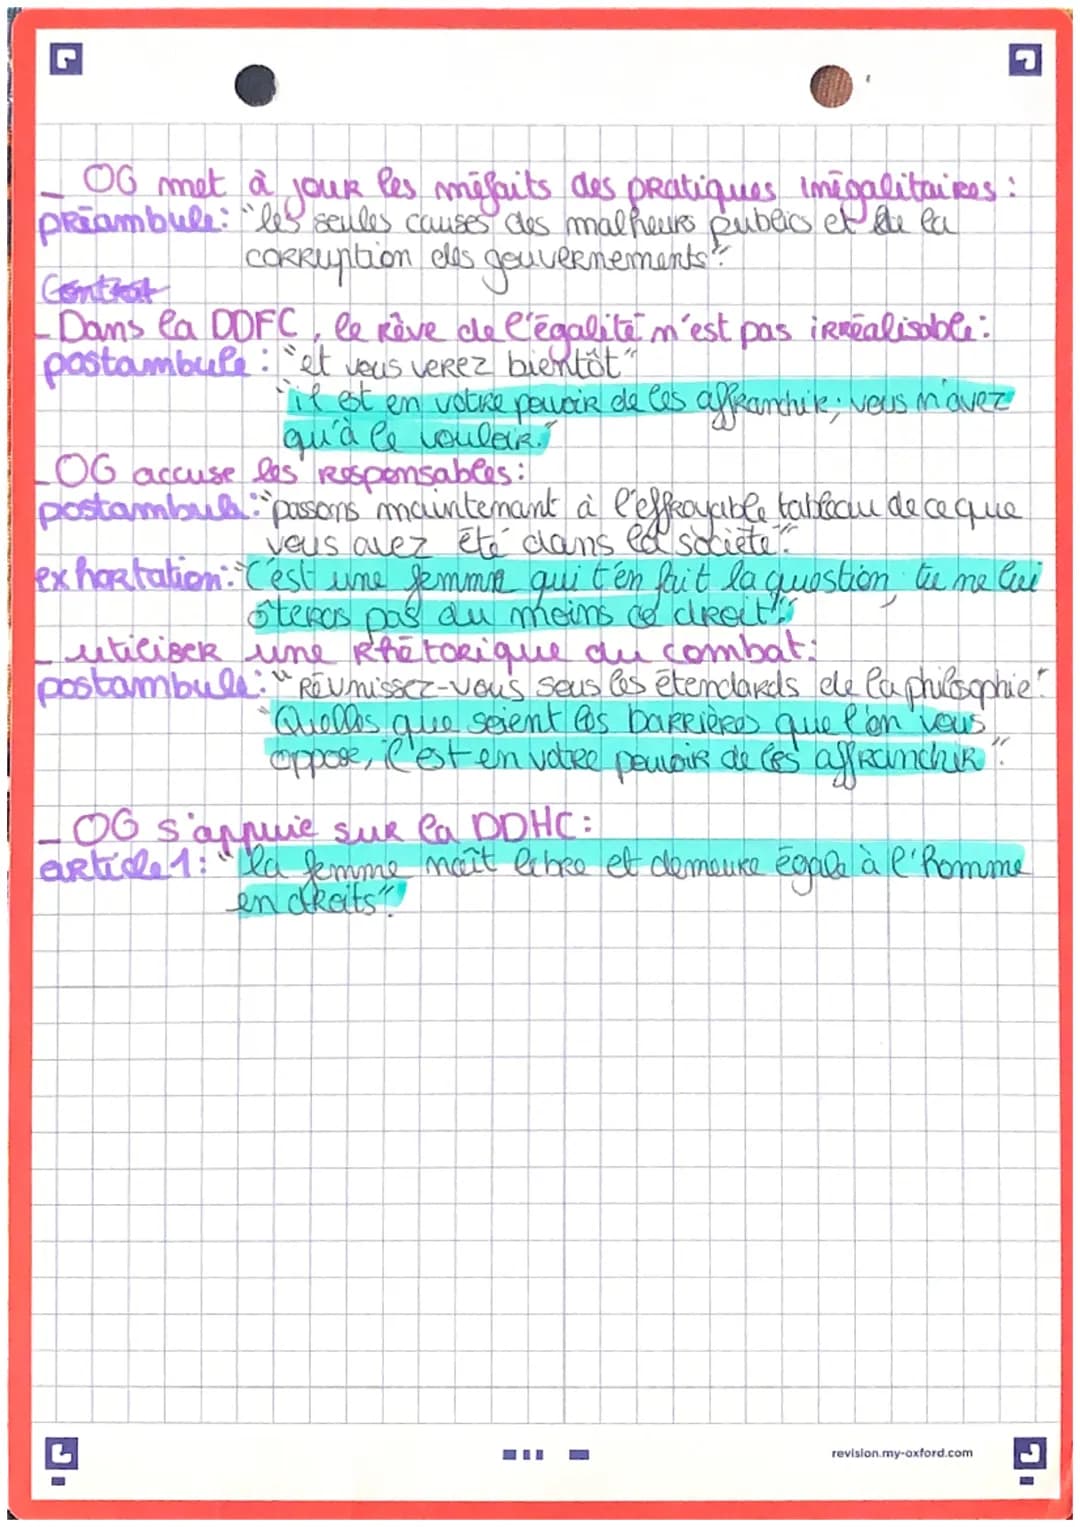 _ OG met à jour les méfaits des pratiques inégalitaires :
préambule: "les seules causes des malheurs publics et de la
corruption des gouvernements".
Contrat
- Dans la DDFC, le rêve de l'égalité n'est pas irréalisable:
postambule : "et vous verez bientôt"
"il est en votre pouvoir de les affranchir; vous n'avez
qu'à le vouloir."
- OG accuse les responsables:
postambule: "passons maintenant à l'effroyable tableau de ce que
vous avez été dans la société".
exhortation: "C'est une femme qui t'en fait la question, tu ne lui
ôteras pas du moins ce droit".
_ utiliser une rhétorique du combat:
postambule: "Réunissez-vous sous les étendards de la philosophie".
"Quelles que soient les barrières que l'on vous
oppose, il est en votre pouvoir de les affranchir".
_ OG s'appuie sur la DDHC:
article 1: "la femme naît libre et demeure égale à l'homme
en droits".
revision.my-oxford.com